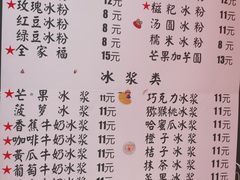 ★玫瑰冰粉 12元
★红豆冰粉 8元
★绿豆冰粉 8元
★全家福 15元
★糍粑冰粉
汤圆冰粉
糯米加芋圆
冰浆类
★芒果冰浆 11元
菠萝冰浆 11元
★香蕉牛奶冰浆 11元
★咖啡牛奶冰浆 11元
★黄瓜牛奶冰浆 11元
★葡萄牛奶冰浆 11元
巧克力冰浆 11元
猕猴桃冰浆 11元
哈蜜瓜冰浆 11元
橙子冰浆 11元
桔子冰浆 11元